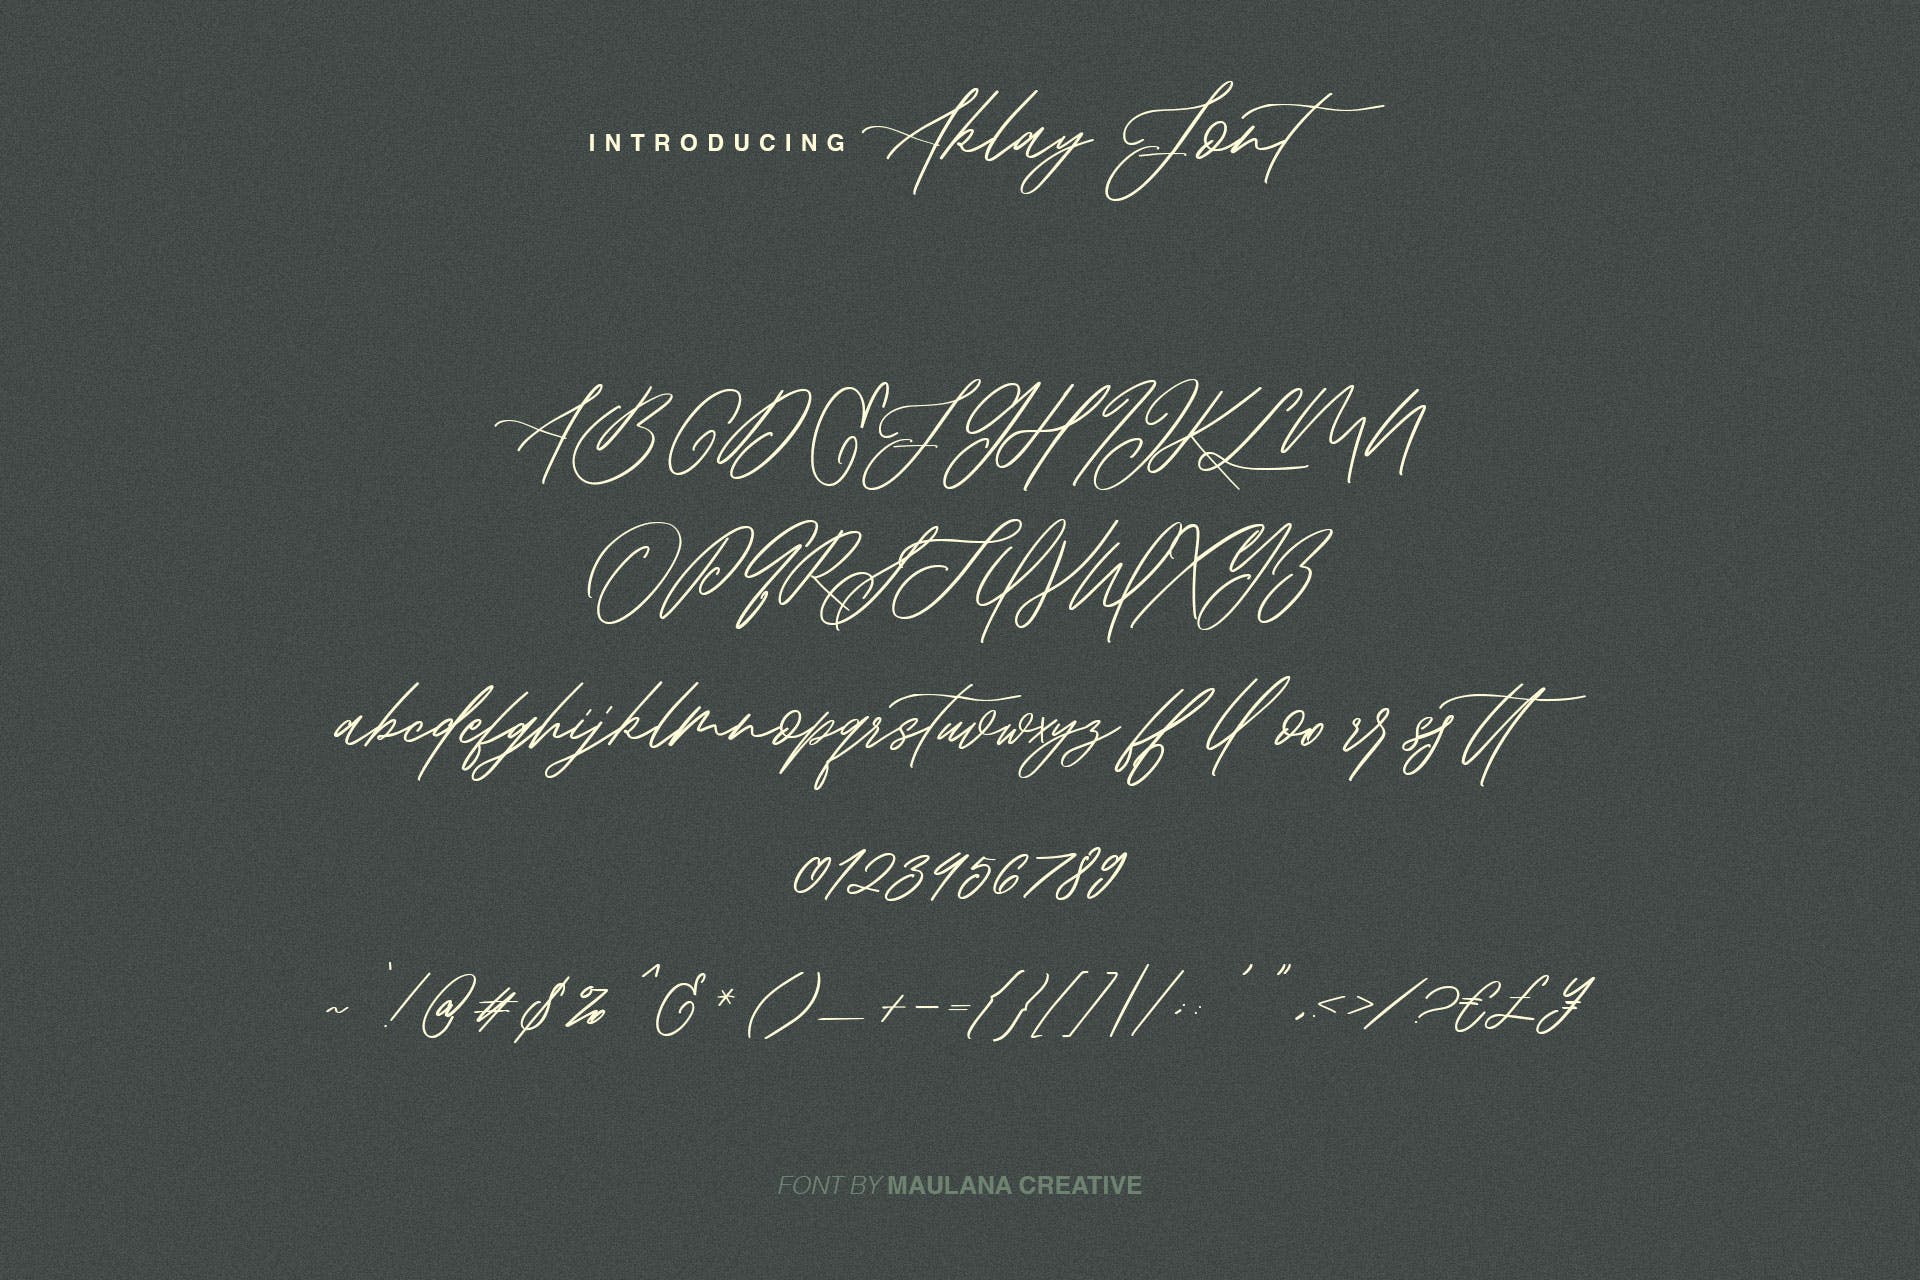 INTRODUCING Aklay Font
ABCDEFGHIJKLMN
OPQRSTUVWXYZ
abcdefghijklmnopqrstuvwxyz ff ll oo rr ss tt
0123456789
~ ` ! @ # $ % ^ & * ( ) _ + - = { } [ ] \ | : ; ' " , . < > / ? € £ ¥
FONT BY MAULANA CREATIVE